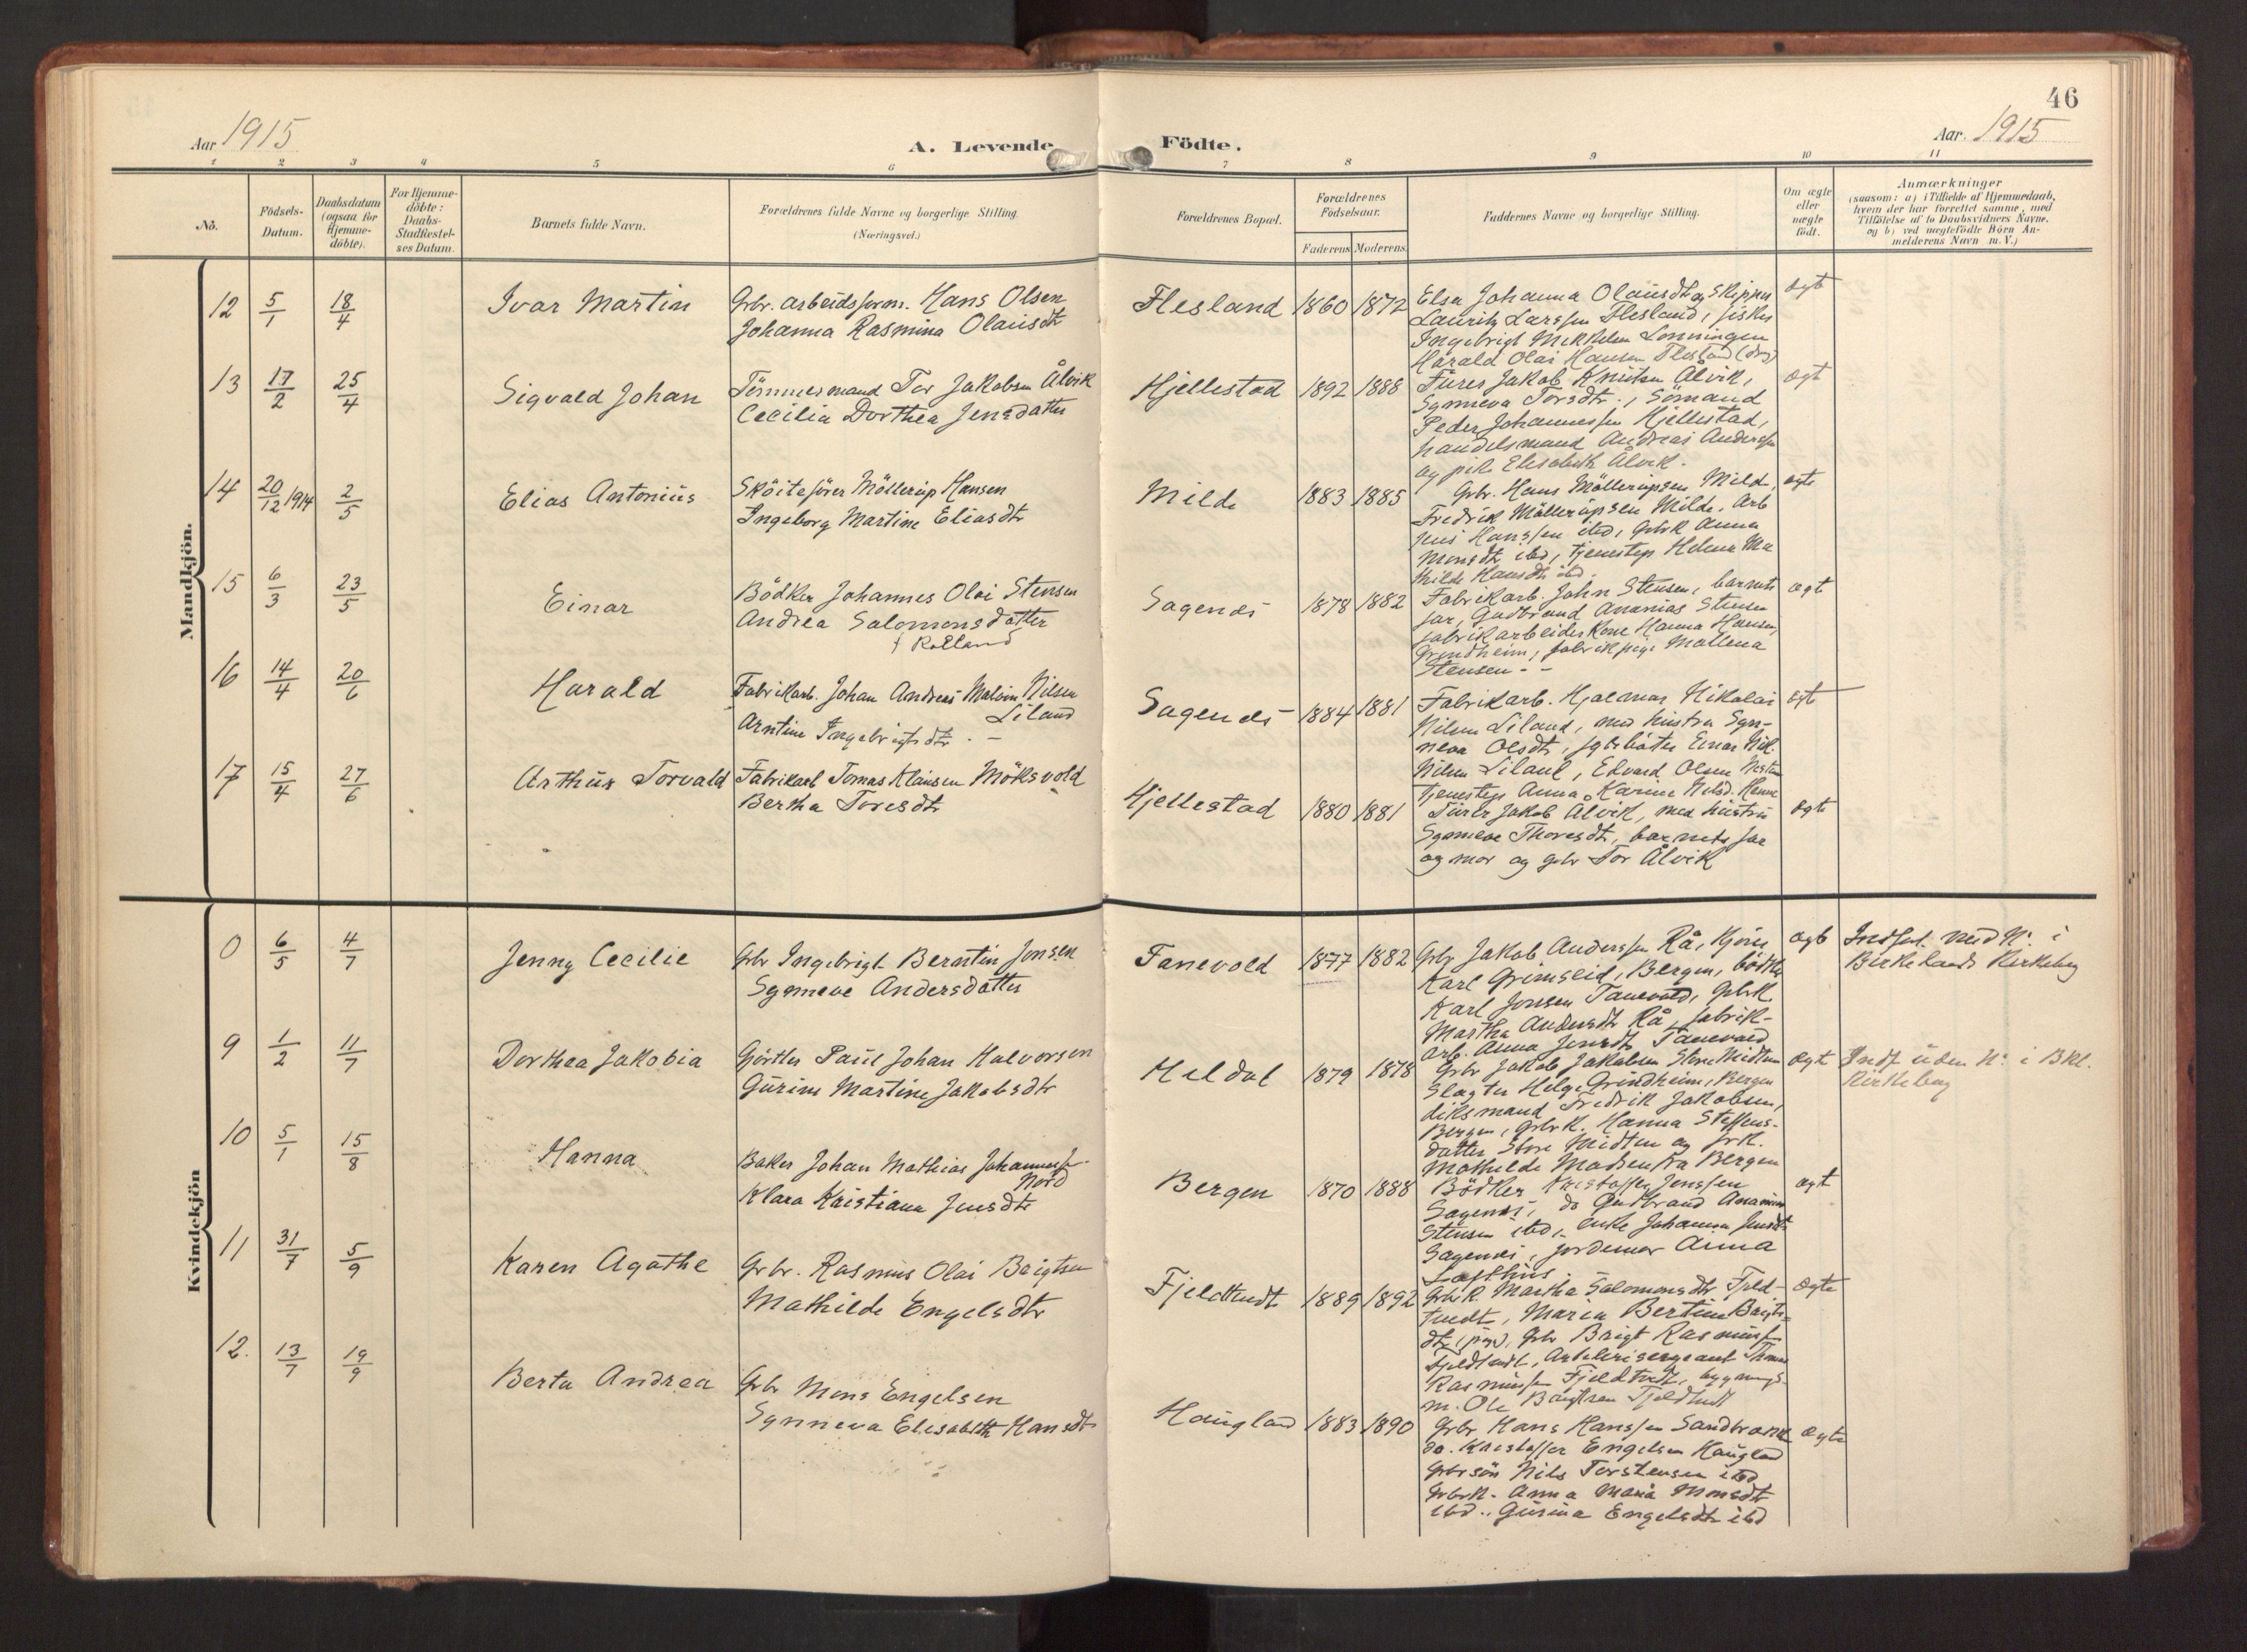 46
Aar 1915
A. Levende Födte.
Aar. 1915
1 2 3 4 5 6 7 8 9 10 11
No.
Födsels-Datum.
Daabsdatum (ogsaa for Hjemme-döbte).
For Hjemme-döbte: Daabs-Stadfæstel-ses Datum.
Barnets fulde Navn.
Forældrenes fulde Navne og borgerlige Stilling. (Næringsvei.)
Forældrenes Bopæl.
Forældrenes Födselsaar.
Faderens. Moderens.
Faddernes Navne og borgerlige Stilling.
Om ægte eller uægte födt.
Anmærkninger
(saasom: a) i Tilfælde af Hjemmedaab,
hvem der har forrettet samme, med
Tilföielse af to Daabsvidners Navne,
og b) ved uægtefödte Börn An-
melderens Navn m. V.)
Mandkjön.
12 5/1 18/4 Ivar Martin
Grbr. arbeidsform. Hans Olsen
Johanna Rasmina Olausdtr
Flesland 1860 1872
Elsa Johanna Olausdtr og Skipper
Lauritz Larssen Flesland, fisker
Ingebrigt Mikkelsen Lønningen
Harald Olai Hansen Flesland
ægt
13 17/2 25/4 Sigvald Johan
Tömmermand Tor Jakobsen Ålvik
Cecilia Dorthea Jensdatter
Hjellestad 1892 1888
Fürer Jakob Knutsen Ålvik,
Synneva Torsdtr., Sömand
Peder Johannessen Hjellestad,
handelsmand Andreas Anderssen
og pike Elisabeth Ålvik.
ægt
14 20/12 1914 2/5 Elias Antonius
Sköitefører Möllerup Hansen
Ingeborg Martine Eliasdtr
Milde 1883 1885
Grbr. Hans Möllerupsen Milde,
Fredrik Möllerupsen Milde. Arb
Jens Hanssen ibd, Grbrk Anna
Monsdtr ibd, tjenestep Helena Ma
thilde Hansdtr ibd.
ægte
15 6/3 23/5 Einar
Bödker Johannes Olai Stensen
Andrea Salomonsdatter
f Rolland
Sagenes 1878 1882
Fabrikarb. John Stensen, barnets
far, Gudbrand Ananias Stensen
fabrikarbeiders Kone Hanna Hansen,
Grindheim, fabrikpige Mallena
Stensen - -
ægt
16 14/4 20/6 Harald
Fabrikarb. Johan Andreas Malvin Nilsen
Liland
Arntine Ingebrigtsdtr. -
Sagenes 1884 1881
Fabrikarb. Hjalmar Nikolai
Nilsen Liland, med hustru Syn-
neva Olsdtr, Einar Nik.
Nilsen Liland, Edvard Olsen
Tjenestep Anna Karine
ægt
17 15/4 27/6 Arthur Torvald
Fabrikarb Tomas Klausen Möksvold
Bertha Toresdtr
Hjellestad 1880 1881
Fürer Jakob Ålvik, med hustru
Synneve Thoresdtr, barnets far
og mor og grbr Tor Ålvik
ægte
Kvindekjön
0 6/5 4/7 Jenny Cecilie
Grbr Ingebrigt Berntin Jonsen
Synneve Andersdatter
Fanevold 1877 1882
Grbr Jakob Anderssen Rå,
Karl Grimseid, Bergen, bödker
Karl Jonsen Fanevold, Grbrk
Martha Andersdtr Rå, fabrik-
arb. Anna Jonsdtr Fanevold
ægt
Indført med N: i
Birkelands Kirkebog
9 1/2 11/7 Dorthea Jakobia
Gjörtler Paul Johan Halvorsen
Gurine Martine Jakobsdtr
Heldal 1879 1878
Grbr Jakob Jakobsen Store Midtun
Slagter Helge Grindheim, Bergen
diksmand Fredrik Jakobsen,
Bergen, Grbrk. Hanna Steffens-
datter Store Midtun og frk.
Mathilde Madsen fra Bergen
ægt
Indf uden N: i Bkl.
Kirkebog
10 5/1 15/8 Hanna
Baker Johan Mathias Johannessen
Nord
Klara Kristiane Jensdtr
Bergen 1870 1888
Bödker Kristoffer Jenssen
Sagenes, do Gudbrand Ananias
Stensen ibd, enke Johanna Jensdtr
Sagenes, jordemor Anna
Lofthus.
ægt
11 31/7 5/9 Karen Agathe
Grbr. Rasmus Olai Brigtsen
Mathilde Engelsdtr
Fjeldtvedt 1889 1892
Grbrk. Martha Salomonsdtr Fjeld-
tvedt, Maria Bertine Brigts-
dtr (pige), Grbr Brigt Rasmussen
Fjeldtvedt, Artelerisergeant Thomas
Rasmussen Fjeldtvedt, bygnings-
m. Ole Brigtsen Fjeldtvedt
ægte
12. 13/7 19/9 Berta Andrea
Grbr Mons Engelsen
Synneva Elisabeth Hansdtr
Haugland 1883 1890
Grbr Hans Hanssen Sandbrække
do. Kristoffer Engelsen Haugland
Grbrsön Nils Torstensen ibd
Grbrk. Anna Maria Monsdtr
ibd., Gurina Engelsdtr ibd
ægte